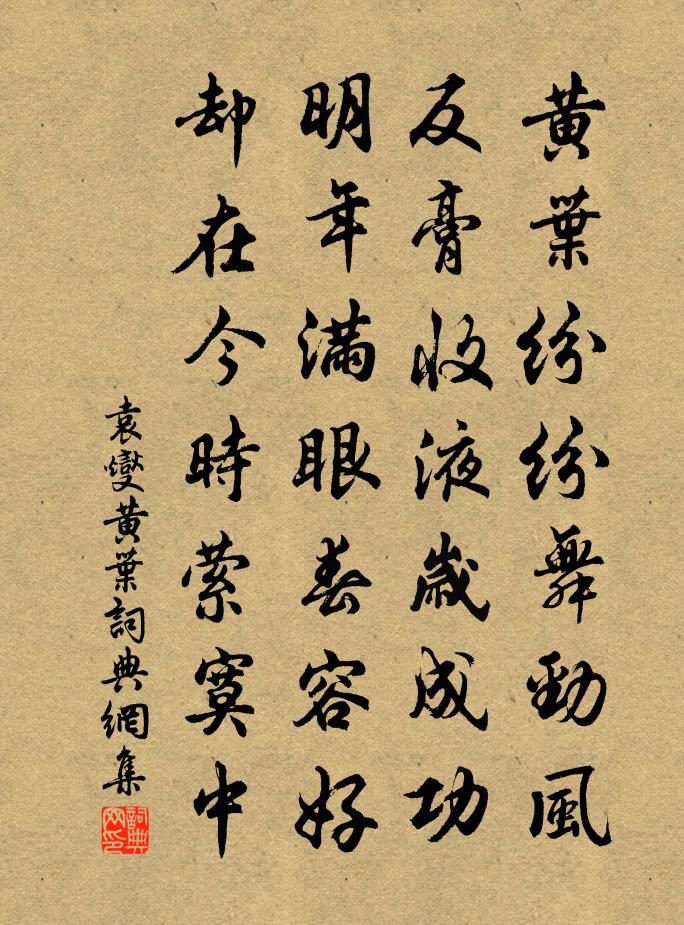 黃葉紛紛舞勁風
反膏收液歲成功
明年滿眼春容好
却在今時縈寞中
袁燮黃葉詞典網集
詞典
网印